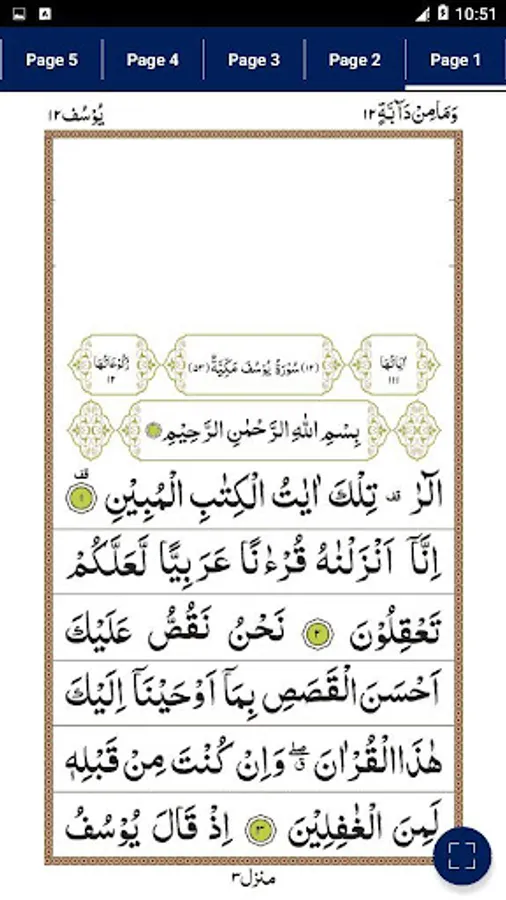 10:51
Page 5 Page 4 Page 3 Page 2 Page 1
وَمَا مِنْ دَآبَّةٍ ١٢ يُوْسُف ١٢
اٰيَاتُهَا ١١١ (١٢) سُوْرَةُ يُوْسُفَ مَكِّيَّةٌ (٥٣) رُكُوْعَاتُهَا ١٢
بِسْمِ اللّٰهِ الرَّحْمٰنِ الرَّحِيْمِ
الٓرٰ ۟ قف تِلْكَ اٰيٰتُ الْكِتٰبِ الْمُبِيْنِ ١ قف
اِنَّآ اَنْزَلْنٰهُ قُرْءٰنًا عَرَبِيًّا لَّعَلَّكُمْ
تَعْقِلُوْنَ ٢ نَحْنُ نَقُصُّ عَلَيْكَ
اَحْسَنَ الْقَصَصِ بِمَآ اَوْحَيْنَآ اِلَيْكَ
هٰذَا الْقُرْاٰنَ ۖق وَاِنْ كُنْتَ مِنْ قَبْلِهٖ
لَمِنَ الْغٰفِلِيْنَ ٣ اِذْ قَالَ يُوْسُفُ
منزل ٣